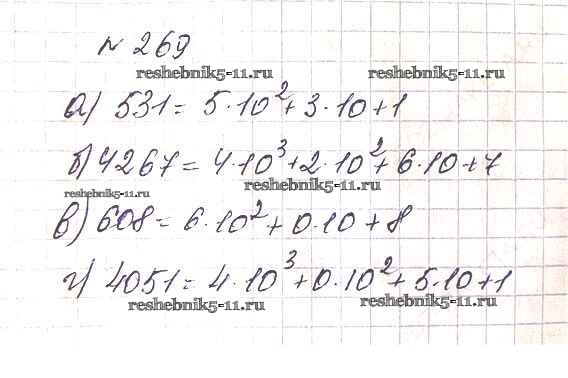 № 269
reshebnik5-11.ru reshebnik5-11.ru
а) 531 = 5·10²+3·10+1
б) 4267 = 4·10³+2·10²+6·10+7
reshebnik5-11.ru reshebnik5-11.ru
в) 608 = 6·10²+0·10+8
г) 4051 = 4·10³+0·10²+5·10+1
reshebnik5-11.ru reshebnik5-11.ru